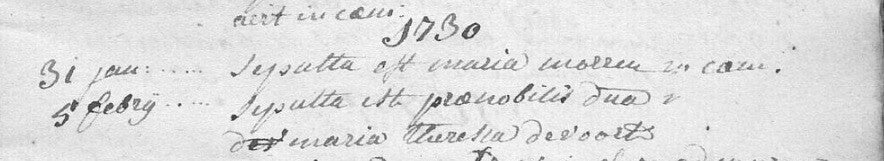 aert in cæm:
1730
31 jan: ...... Sepulta est maria morren in cæm:
5 febrij ...... Sepulta est prænobilis dna
maria theresia devoorts